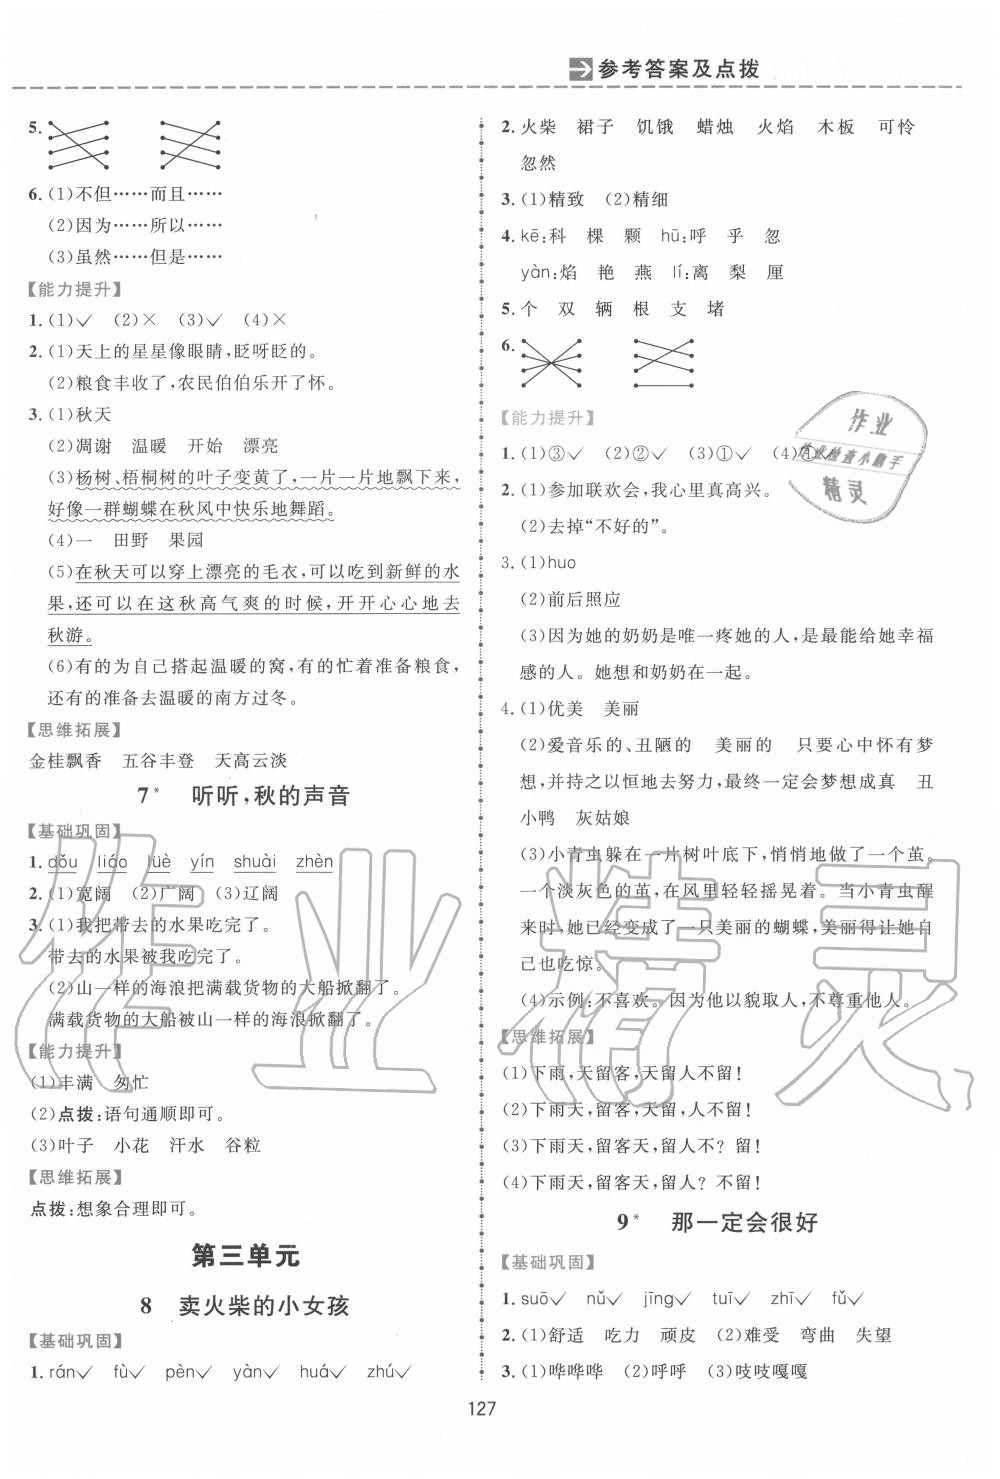 参考答案及点拨
5.
6. (1)不但……而且……
(2)因为……所以……
(3)虽然……但是……
【能力提升】
1. (1)✓ (2)× (3)✓ (4)×
2. (1)天上的星星像眼睛,眨呀眨的。
(2)粮食丰收了,农民伯伯乐开了怀。
3. (1)秋天
(2)凋谢 温暖 开始 漂亮
(3)杨树、梧桐树的叶子变黄了,一片一片地飘下来,
好像一群蝴蝶在秋风中快乐地舞蹈。
(4)一 田野 果园
(5)在秋天可以穿上漂亮的毛衣,可以吃到新鲜的水
果,还可以在这秋高气爽的时候,开开心心地去
秋游。
(6)有的为自己搭起温暖的窝,有的忙着准备粮食,
还有的准备去温暖的南方过冬。
【思维拓展】
金桂飘香 五谷丰登 天高云淡
7* 听听,秋的声音
【基础巩固】
1. dǒu liáo lüè yín shuài zhèn
2. (1)宽阔 (2)广阔 (3)辽阔
3. (1)我把带去的水果吃完了。
带去的水果被我吃完了。
(2)山一样的海浪把满载货物的大船掀翻了。
满载货物的大船被山一样的海浪掀翻了。
【能力提升】
(1)丰满 匆忙
(2)点拨:语句通顺即可。
(3)叶子 小花 汗水 谷粒
【思维拓展】
点拨:想象合理即可。
第三单元
8 卖火柴的小女孩
【基础巩固】
1. rán✓ fù✓ pèn✓ yàn✓ huá✓ zhú✓
2. 火柴 裙子 饥饿 蜡烛 火焰 木板 可怜
忽然
3. (1)精致 (2)精细
4. kē:科 棵 颗 hū:呼 乎 忽
yàn:焰 艳 燕 lí:离 梨 厘
5. 个 双 辆 根 支 堵
6.
【能力提升】
1. (1)③✓ (2)②✓ (3)①✓ (4)①✓
2. (1)参加联欢会,我心里真高兴。
(2)去掉“不好的”。
3. (1)huo
(2)前后照应
(3)因为她的奶奶是唯一疼她的人,是最能给她幸福
感的人。她想和奶奶在一起。
4. (1)优美 美丽
(2)爱音乐的、丑陋的 美丽的 只要心中怀有梦
想,并持之以恒地去努力,最终一定会梦想成真 丑
小鸭 灰姑娘
(3)小青虫躲在一片树叶底下,悄悄地做了一个茧。
一个淡灰色的茧,在风里轻轻摇晃着。当小青虫醒
来时,她已经变成了一只美丽的蝴蝶,美丽得让她自
己也吃惊。
(4)示例:不喜欢。因为他以貌取人,不尊重他人。
【思维拓展】
(1)下雨,天留客,天留人不留!
(2)下雨天,留客,天留,人不留!
(3)下雨天,留客天,留人不? 留!
(4)下雨天,留客天,留人? 不留!
9* 那一定会很好
【基础巩固】
1. suō✓ nǔ✓ jīng✓ tuī✓ zhī✓ fǔ✓
2. (1)舒适 吃力 顽皮 (2)难受 弯曲 失望
3. (1)哗哗哗 (2)呼呼 (3)吱吱嘎嘎
127
作业
作业检查小助手
精灵
作业精灵